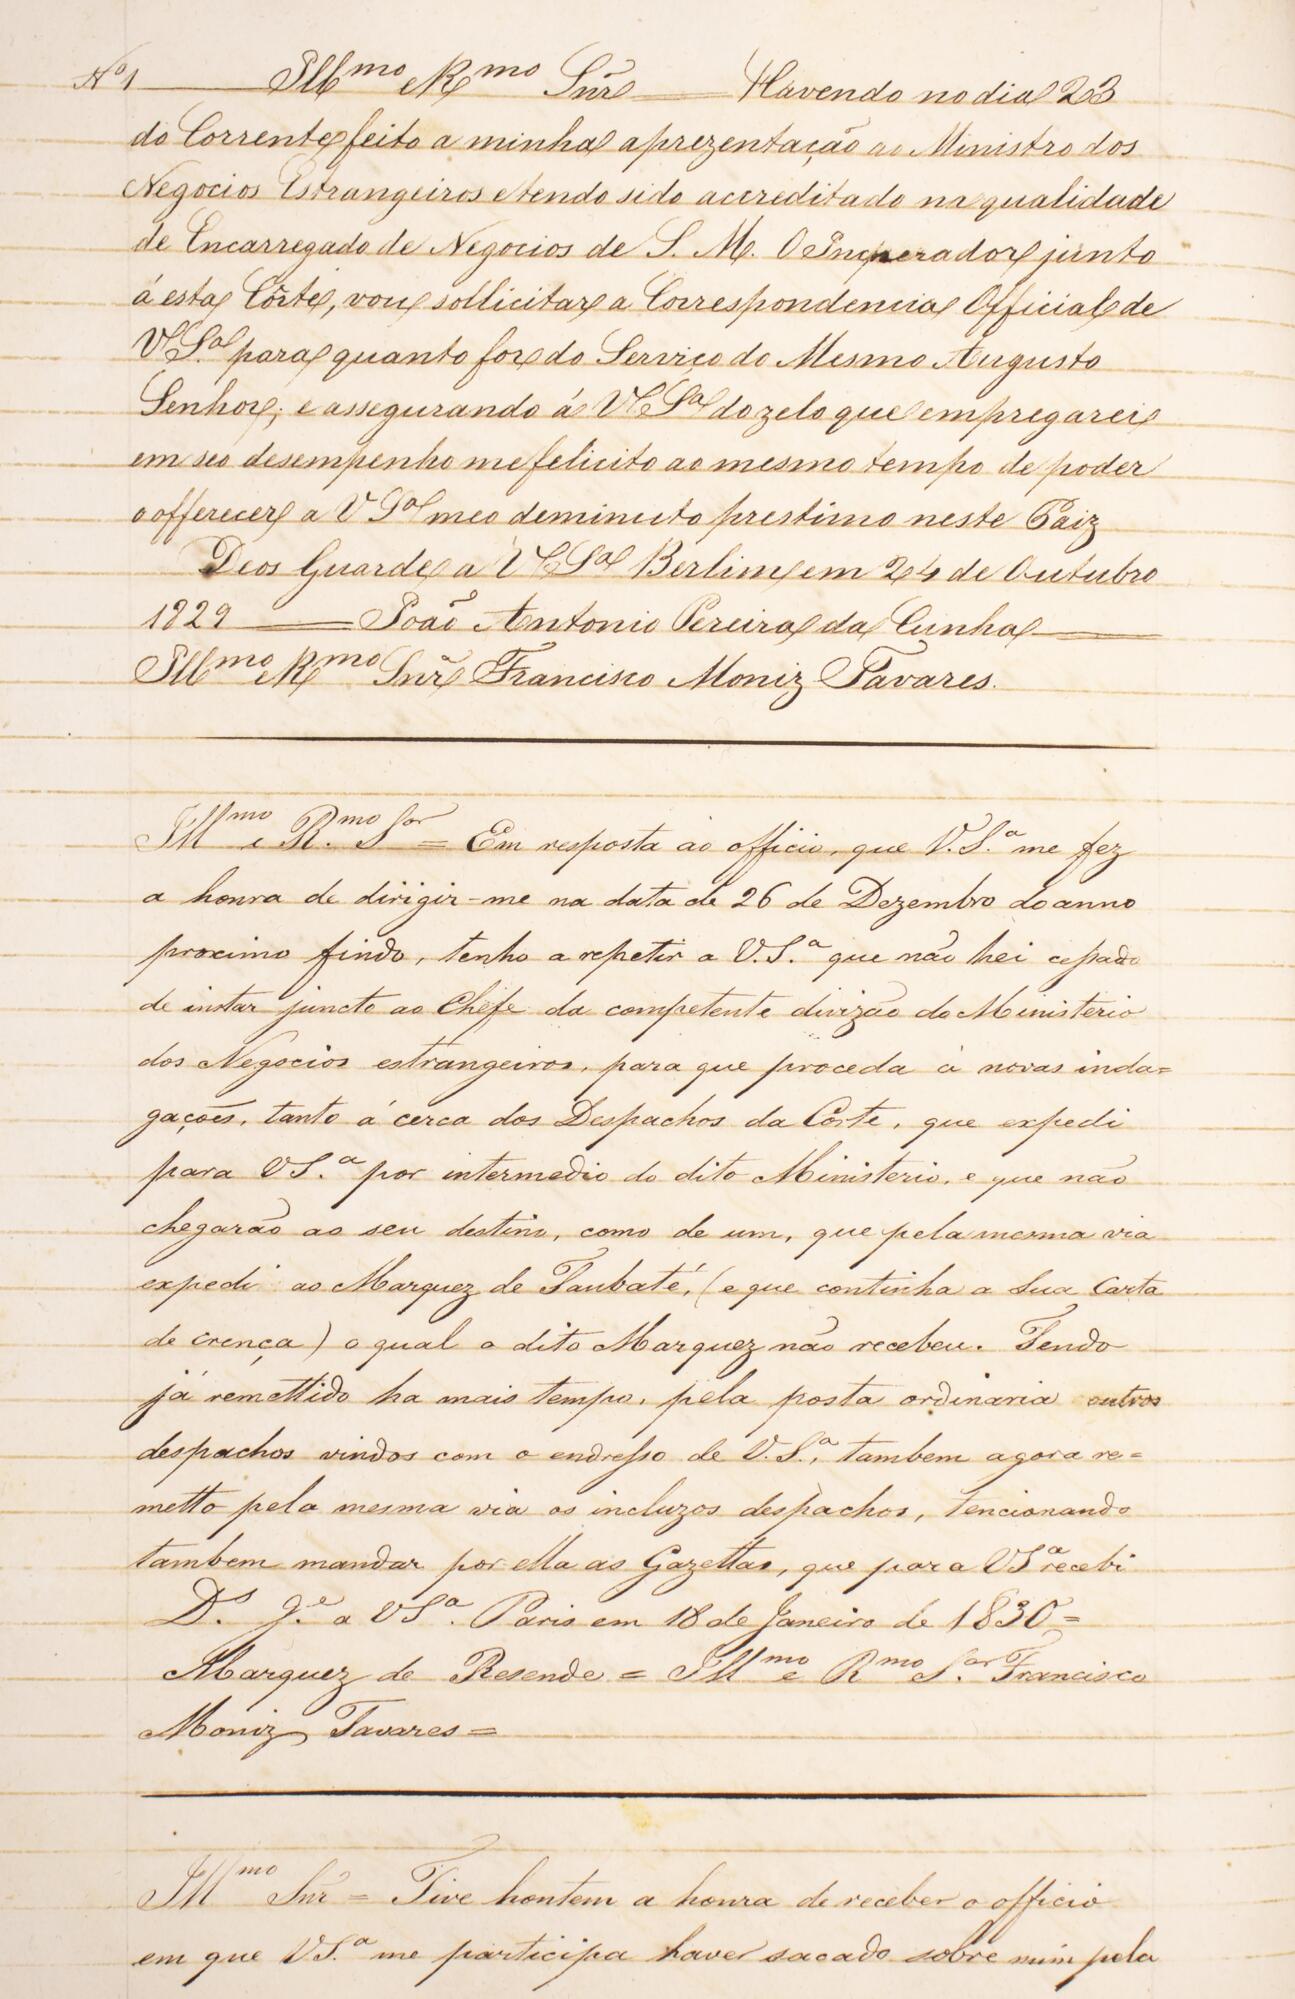 Nº 1 Illmo e Rmo Snr̃ Havendo no dia 23
do Corrente feito a minha aprezentação ao Ministro dos
Negocios Estrangeiros e tendo sido accreditado na qualidade
de Encarregado de Negocios de S. M. O Imperador junto
á esta Côrte, vou sollicitar a Correspondencia Official de
V Sa. para quanto for do Serviço do Mesmo Augusto
Senhor; e assegurando á V Sa do zelo que empregarei
em seo desempenho me felicito ao mesmo tempo de poder
o offerecer a V Sa meo deminuto prestimo neste Paiz
Deos Guarde a V Sa Berlim em 24 de Outubro
1829 João Antonio Pereira da Cunha
Illmo e Rmo Snr̃ Francisco Moniz Tavares.
Illmo e R.mo Sor = Em resposta ao officio, que V. S.a me fez
a honra de dirigir-me na data de 26 de Dezembro do anno
proximo findo, tenho a repetir a V. S.a que não hei cessado
de instar juncto ao Chefe da competente divizão do Ministerio
dos Negocios estrangeiros, para que proceda á novas inda=
gações, tanto á cerca dos Despachos da Côrte, que expedi
para V S.a por intermedio do dito Ministerio, e que não
chegarão ao seu destino, como de um, que pela mesma via
expedi ao Marquez de Taubaté, (e que continha a sua Carta
de crença) o qual o dito Marquez não recebeu. Tendo
já remettido ha mais tempo, pela posta ordinaria outros
despachos vindos com o endresso de V. S.a, tambem agora re=
metto pela mesma via os incluzos despachos, tencionando
tambem mandar por ella as Gazettas, que para V Sa recebi
D.s g.e a V S a. Paris em 18 de Janeiro de 1830 =
Marquez de Resende = Illmo e Rmo S.or Francisco
Moniz Tavares =
Illmo Snr = Tive hontem a honra de receber o officio
em que V S.a me participa haver sacado sobre mim pela